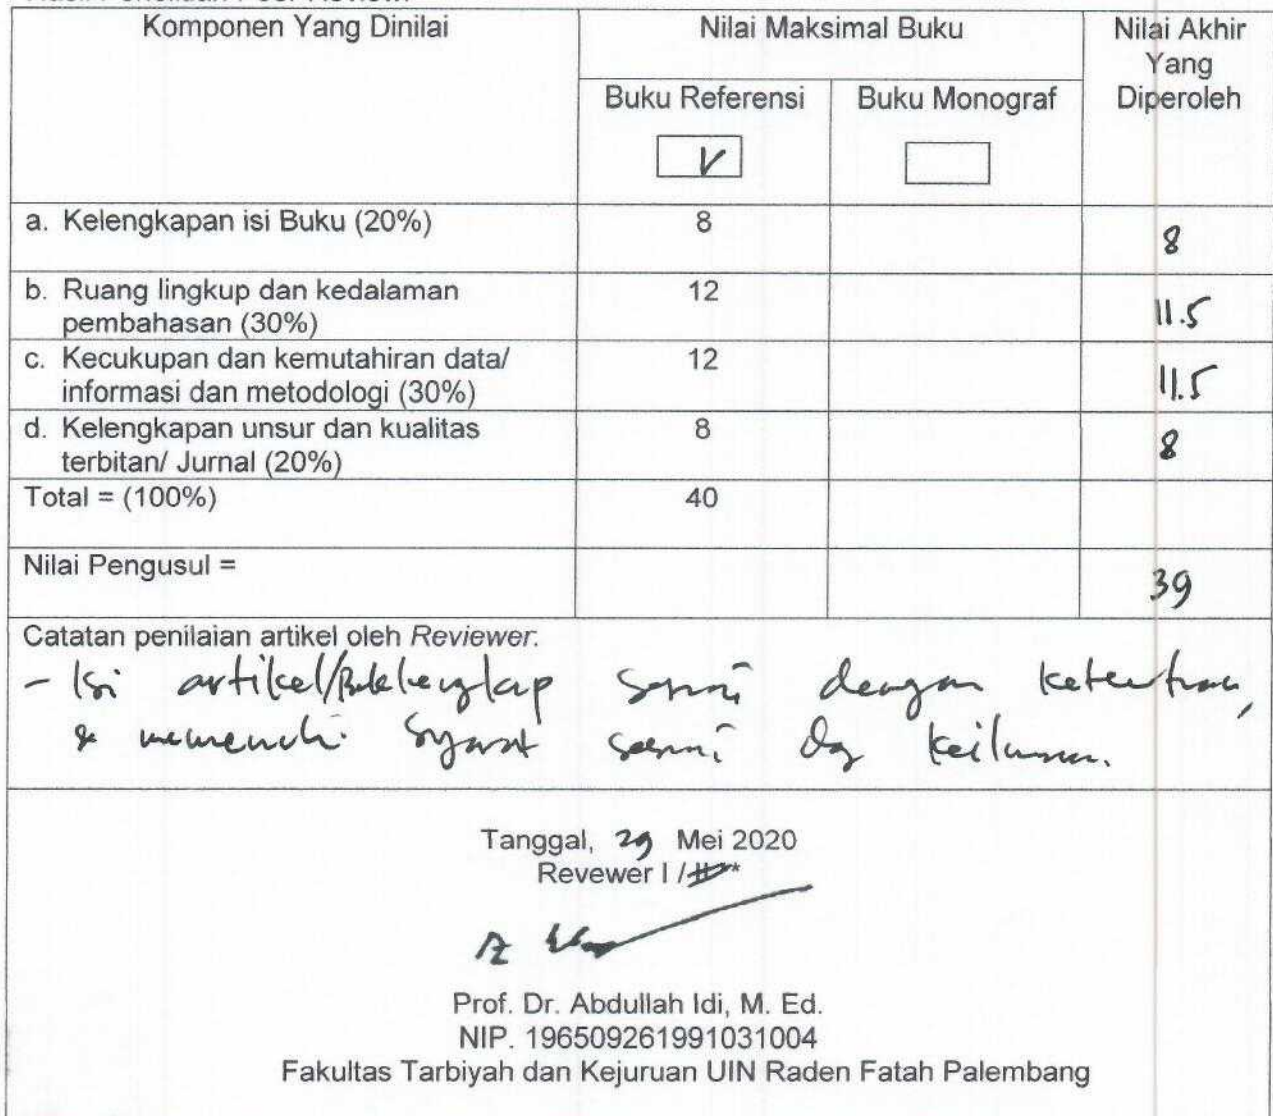 Komponen Yang Dinilai
Nilai Maksimal Buku
Nilai Akhir
Yang
Diperoleh
Buku Referensi
Buku Monograf
V
a. Kelengkapan isi Buku (20%)
8
8
b. Ruang lingkup dan kedalaman
pembahasan (30%)
12
11.5
c. Kecukupan dan kemutahiran data/
informasi dan metodologi (30%)
12
11.5
d. Kelengkapan unsur dan kualitas
terbitan/ Jurnal (20%)
8
8
Total = (100%)
40
Nilai Pengusul =
39
Catatan penilaian artikel oleh Reviewer:
- Isi artikel/Buku lengkap sesuai dengan ketentuan,
& memenuhi syarat sesuai dg keilmuan.
Tanggal, 29 Mei 2020
Revewer I / II*
Prof. Dr. Abdullah Idi, M. Ed.
NIP. 196509261991031004
Fakultas Tarbiyah dan Kejuruan UIN Raden Fatah Palembang